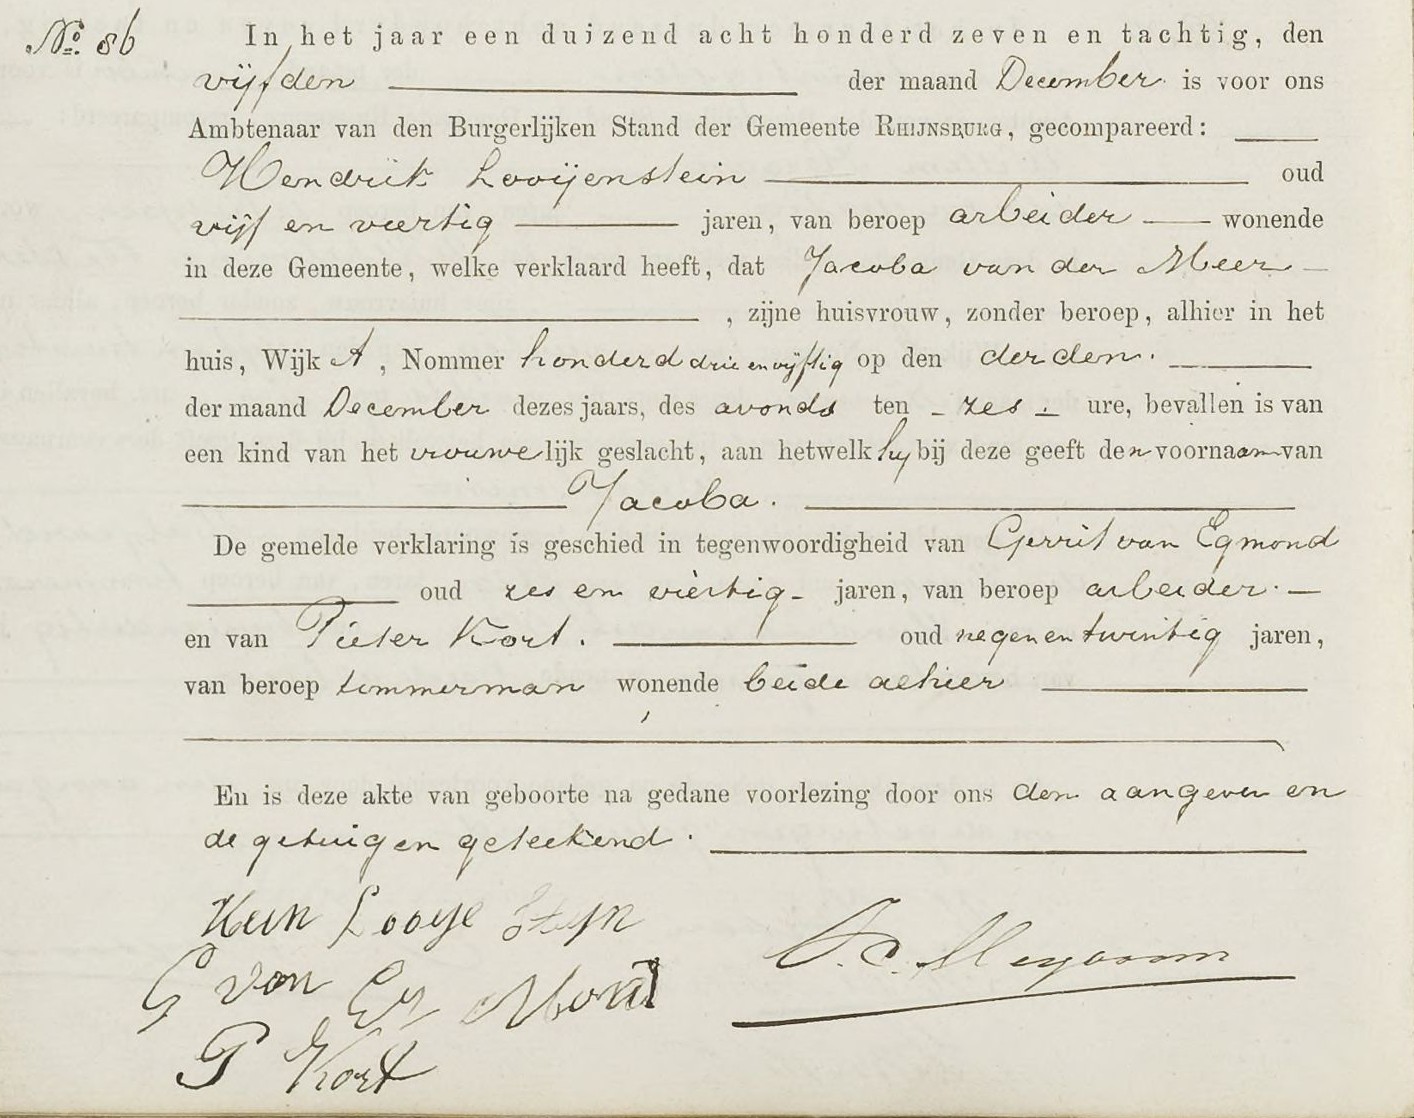 No. 86 In het jaar een duizend acht honderd zeven en tachtig, den
vijfden der maand December is voor ons
Ambtenaar van den Burgerlijken Stand der Gemeente RHIJNSBURG, gecompareerd:
Hendrik Looijenstein oud
vijf en veertig jaren, van beroep arbeider wonende
in deze Gemeente, welke verklaard heeft, dat Jacoba van der Meer
, zijne huisvrouw, zonder beroep, alhier in het
huis, Wijk A, Nommer honderd drie en vijftig op den derden.
der maand December dezes jaars, des avonds ten - zes - ure, bevallen is van
een kind van het vrouwelijk geslacht, aan hetwelk hij bij deze geeft den voornaam van
Jacoba.
De gemelde verklaring is geschied in tegenwoordigheid van Gerrit van Egmond
oud zes en viertig - jaren, van beroep arbeider.
en van Pieter Kort. oud negen en twintig jaren,
van beroep timmerman wonende beide alhier
En is deze akte van geboorte na gedane voorlezing door ons den aangever en
de getuigen geteekend.
Looye Steyn
G van Eg Mond
P Kort